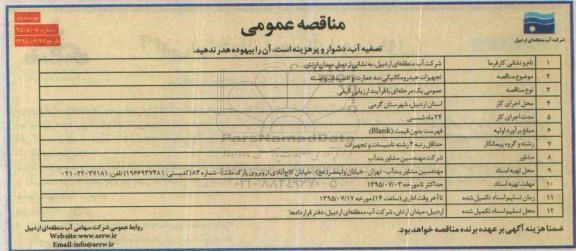 نوبت دوم
مناقصه عمومی
شرکت آب منطقه‌ای اردبیل
تصفیه آب، دشوار و پرهزینه است، آن را بیهوده هدر ندهید.
۱ نام و نشانی کارفرما شرکت آب منطقه‌ای اردبیل به نشانی اردبیل میدان ارتش
۲ موضوع مناقصه تجهیزات هیدرومکانیکی سد عمارت و تاسیسات وابسته
۳ نوع مناقصه عمومی یک مرحله‌ای با فرآیند ارزیابی کیفی
۴ محل اجرای کار استان اردبیل، شهرستان گرمی
۵ مدت اجرای کار ۲۴ ماه شمسی
۶ مبلغ برآورد اولیه فهرست بدون قیمت (Blank)
۷ رشته و گروه پیمانکار حداقل رتبه ۴ رشته تاسیسات و تجهیزات
۸ مشاور شرکت مهندسین مشاور بندآب
۹ محل تهیه اسناد مهندسین مشاور بندآب - تهران - خیابان ولیعصر (عج) - خیابان کاج‌آبادی (روبروی پارک ملت) - شماره ۸۳ (کدپستی: 1966937481) تلفن: ۰۲۱-۲۲۰۳۷۱۸۱
۱۰ مهلت تهیه اسناد حداکثر تا مورخه ۱۳۹۵/۰۷/۰۳
۱۱ زمان تسلیم اسناد تکمیل شده تا آخر وقت اداری (ساعت ۱۴) مورخه ۱۳۹۵/۰۷/۱۷
۱۲ محل تسلیم اسناد تکمیل شده اردبیل، میدان ارتش، شرکت آب منطقه‌ای اردبیل، دفتر قراردادها
ParsNamadData
۰۲۱-۸۸۳۴۹۶۷۰-۵
ضمنا هزینه آگهی بر عهده برنده مناقصه خواهد بود.
روابط عمومی شرکت سهامی آب منطقه‌ای اردبیل
Website:www.arrw.ir
Email:info@arrw.ir